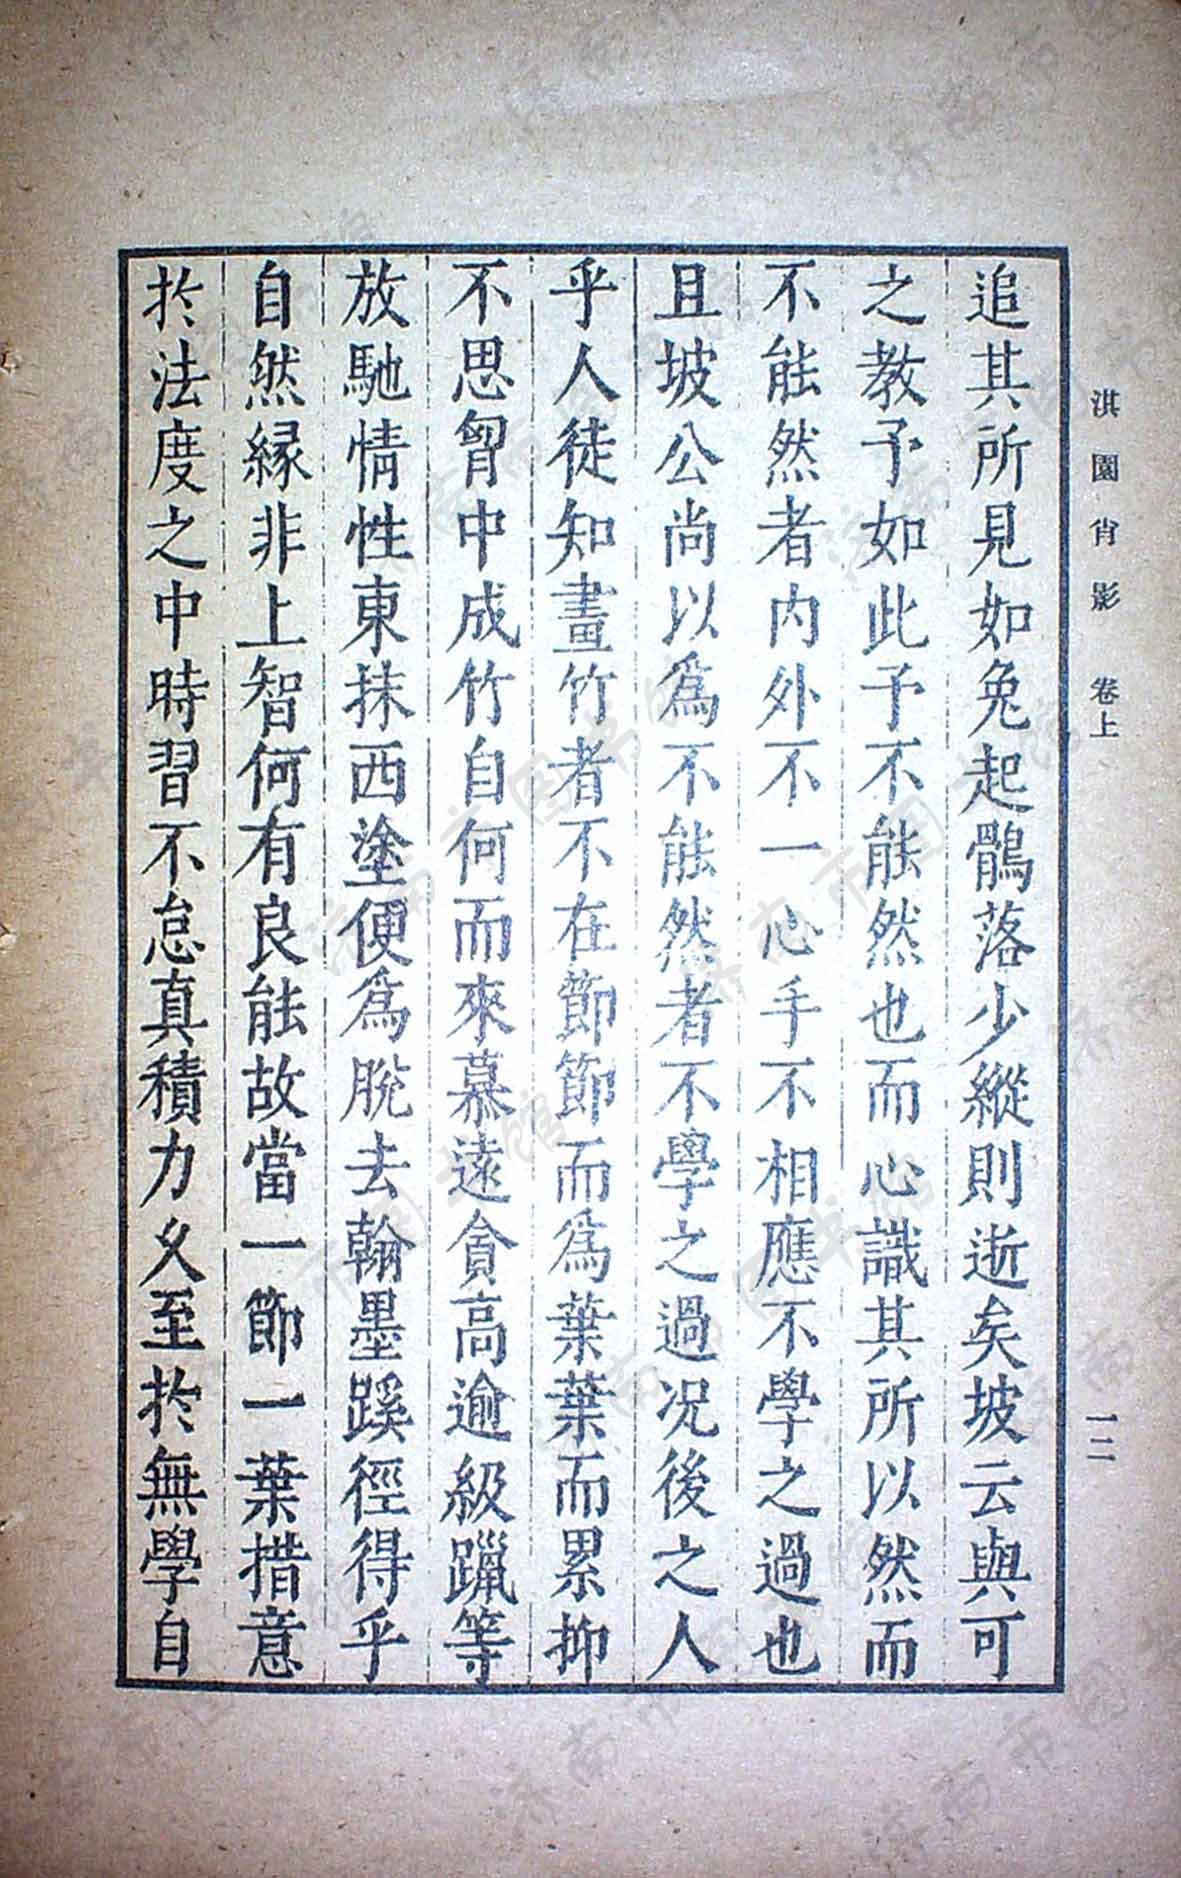 淇園肖影 卷上
一二
追其所見如兔起鶻落少縱則逝矣坡云與可
之教予如此予不能然也而心識其所以然而
不能然者內外不一心手不相應不學之過也
且坡公尚以爲不能然者不學之過況後之人
乎人徒知畫竹者不在節節而爲葉葉而累抑
不思胷中成竹自何而來慕遠貪高逾級躐等
放馳情性東抹西塗便爲脫去翰墨蹊徑得乎
自然緣非上智何有良能故當一節一葉措意
於法度之中時習不怠真積力久至於無學自
濟南市圖書館